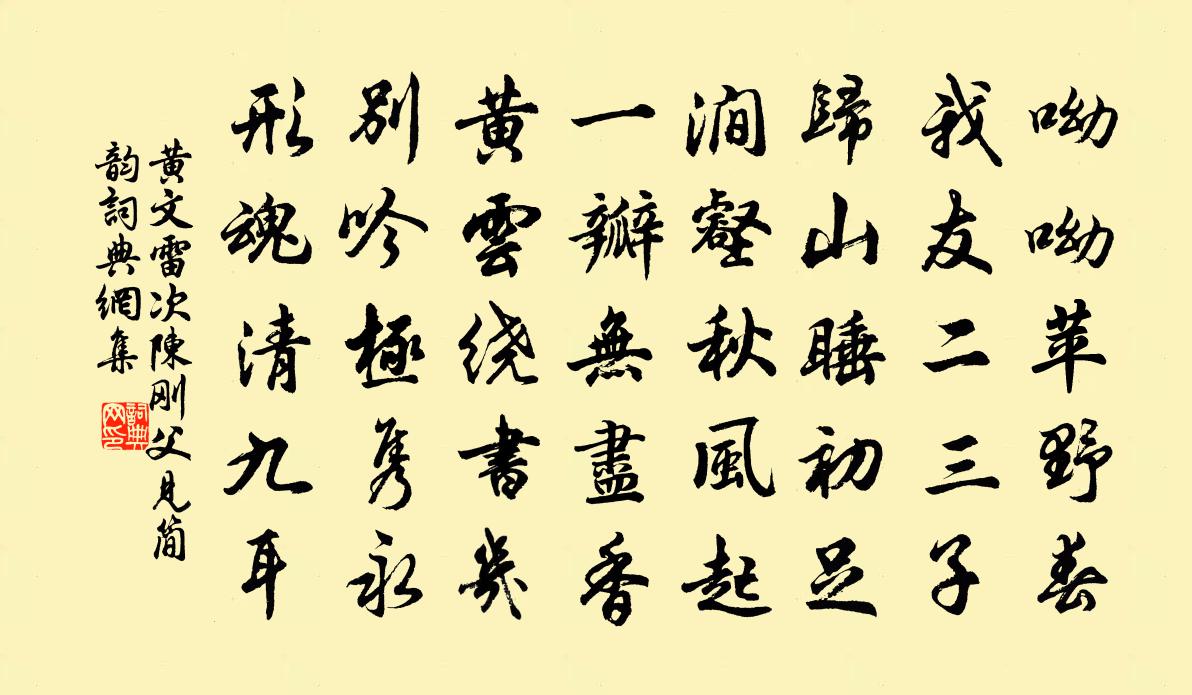 呦呦苹野春
我友二三子
歸山睡初足
澗壑秋風起
一瓣無盡香
黄雲绕書幾
別吟極隽永
形魂清九耳
黄文雷次陳刚父見简
韵詞典網集
詞典网印